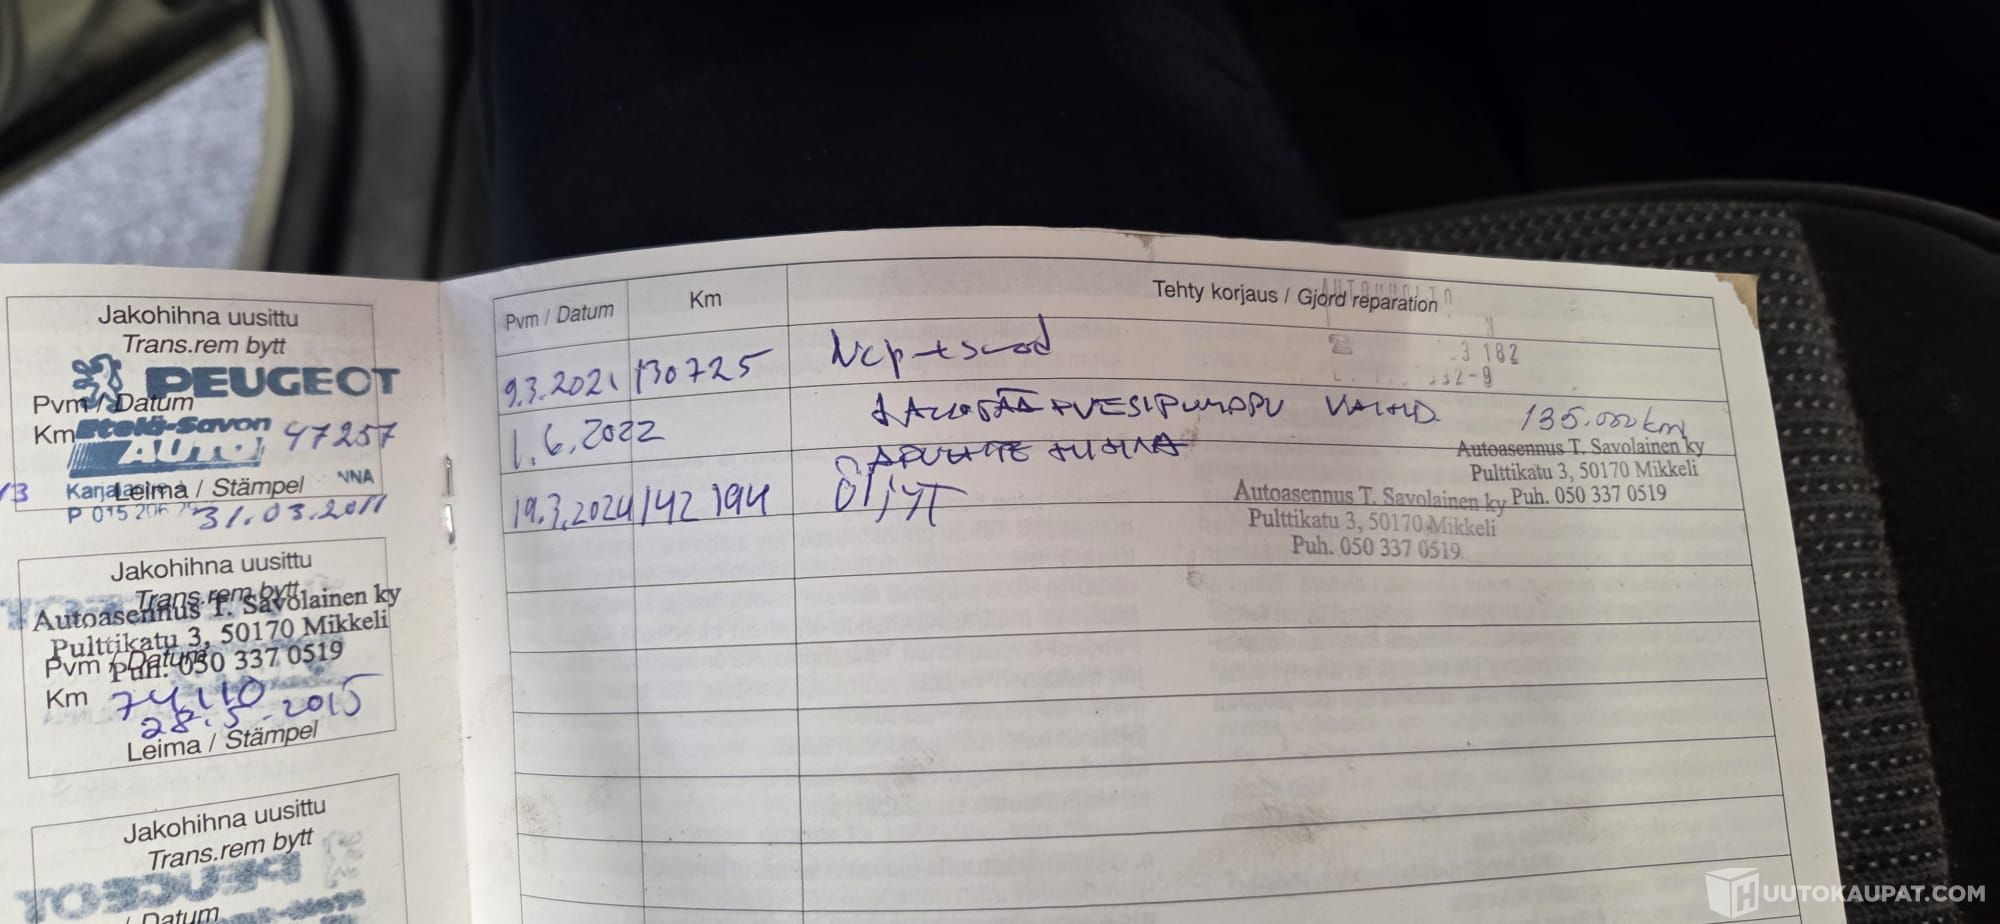 Jakohihna uusittu
Trans.rem bytt
PEUGEOT
Pvm / Datum
Etelä-Savon
Km 47257
AUTO
Leima / Stämpel
31.03.2011
Jakohihna uusittu
Trans.rem bytt
Autoasennus T. Savolainen ky
Pulttikatu 3, 50170 Mikkeli
Pvm / Datum
Puh. 050 337 0519
Km 74110
28.5.2015
Leima / Stämpel
Jakohihna uusittu
Trans.rem bytt
/ Datum
Pvm / Datum
Km
Tehty korjaus / Gjord reparation
9.3.2021 130725
3 182
32-9
1.6.2022
135.000km
Autoasennus T. Savolainen ky
Pulttikatu 3, 50170 Mikkeli
Puh. 050 337 0519
19.3.2024 142 194 Öljyt
Autoasennus T. Savolainen ky
Pulttikatu 3, 50170 Mikkeli
Puh. 050 337 0519
HUUTOKAUPAT.COM